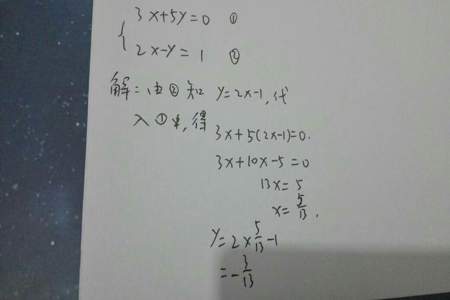 { 3x+5y=0 ①
2x-y=1 ②
解:由②知 y=2x-1,代
入①中,得
3x+5(2x-1)=0.
3x+10x-5=0
13x=5
x=5/13.
y=2×5/13-1
=-3/13